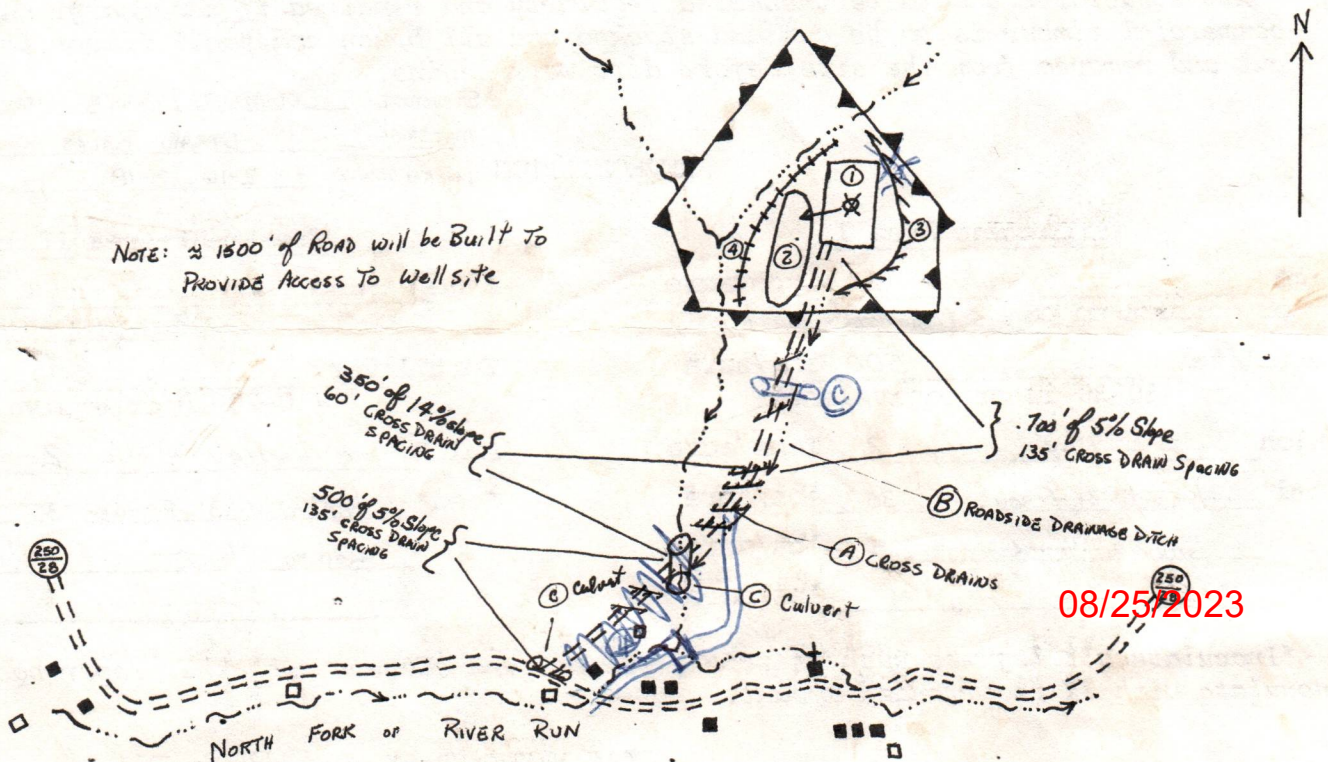 N
①
③
④
②
NOTE: ≈ 1500' of ROAD will be Built To
PROVIDE ACCESS To wellsite
350' of 14% slope
60' CROSS DRAIN
SPACING
Ⓒ
700' of 5% Slope
135' CROSS DRAIN SpACING
500' of 5% Slope
135' CROSS DRAIN
SPACING
Ⓑ ROADSIDE DRAINAGE DITCH
Ⓐ CROSS DRAINS
250
28
Ⓒ Culvert
Ⓒ Culvert
250
08/25/2023
NORTH FORK OF RIVER RUN